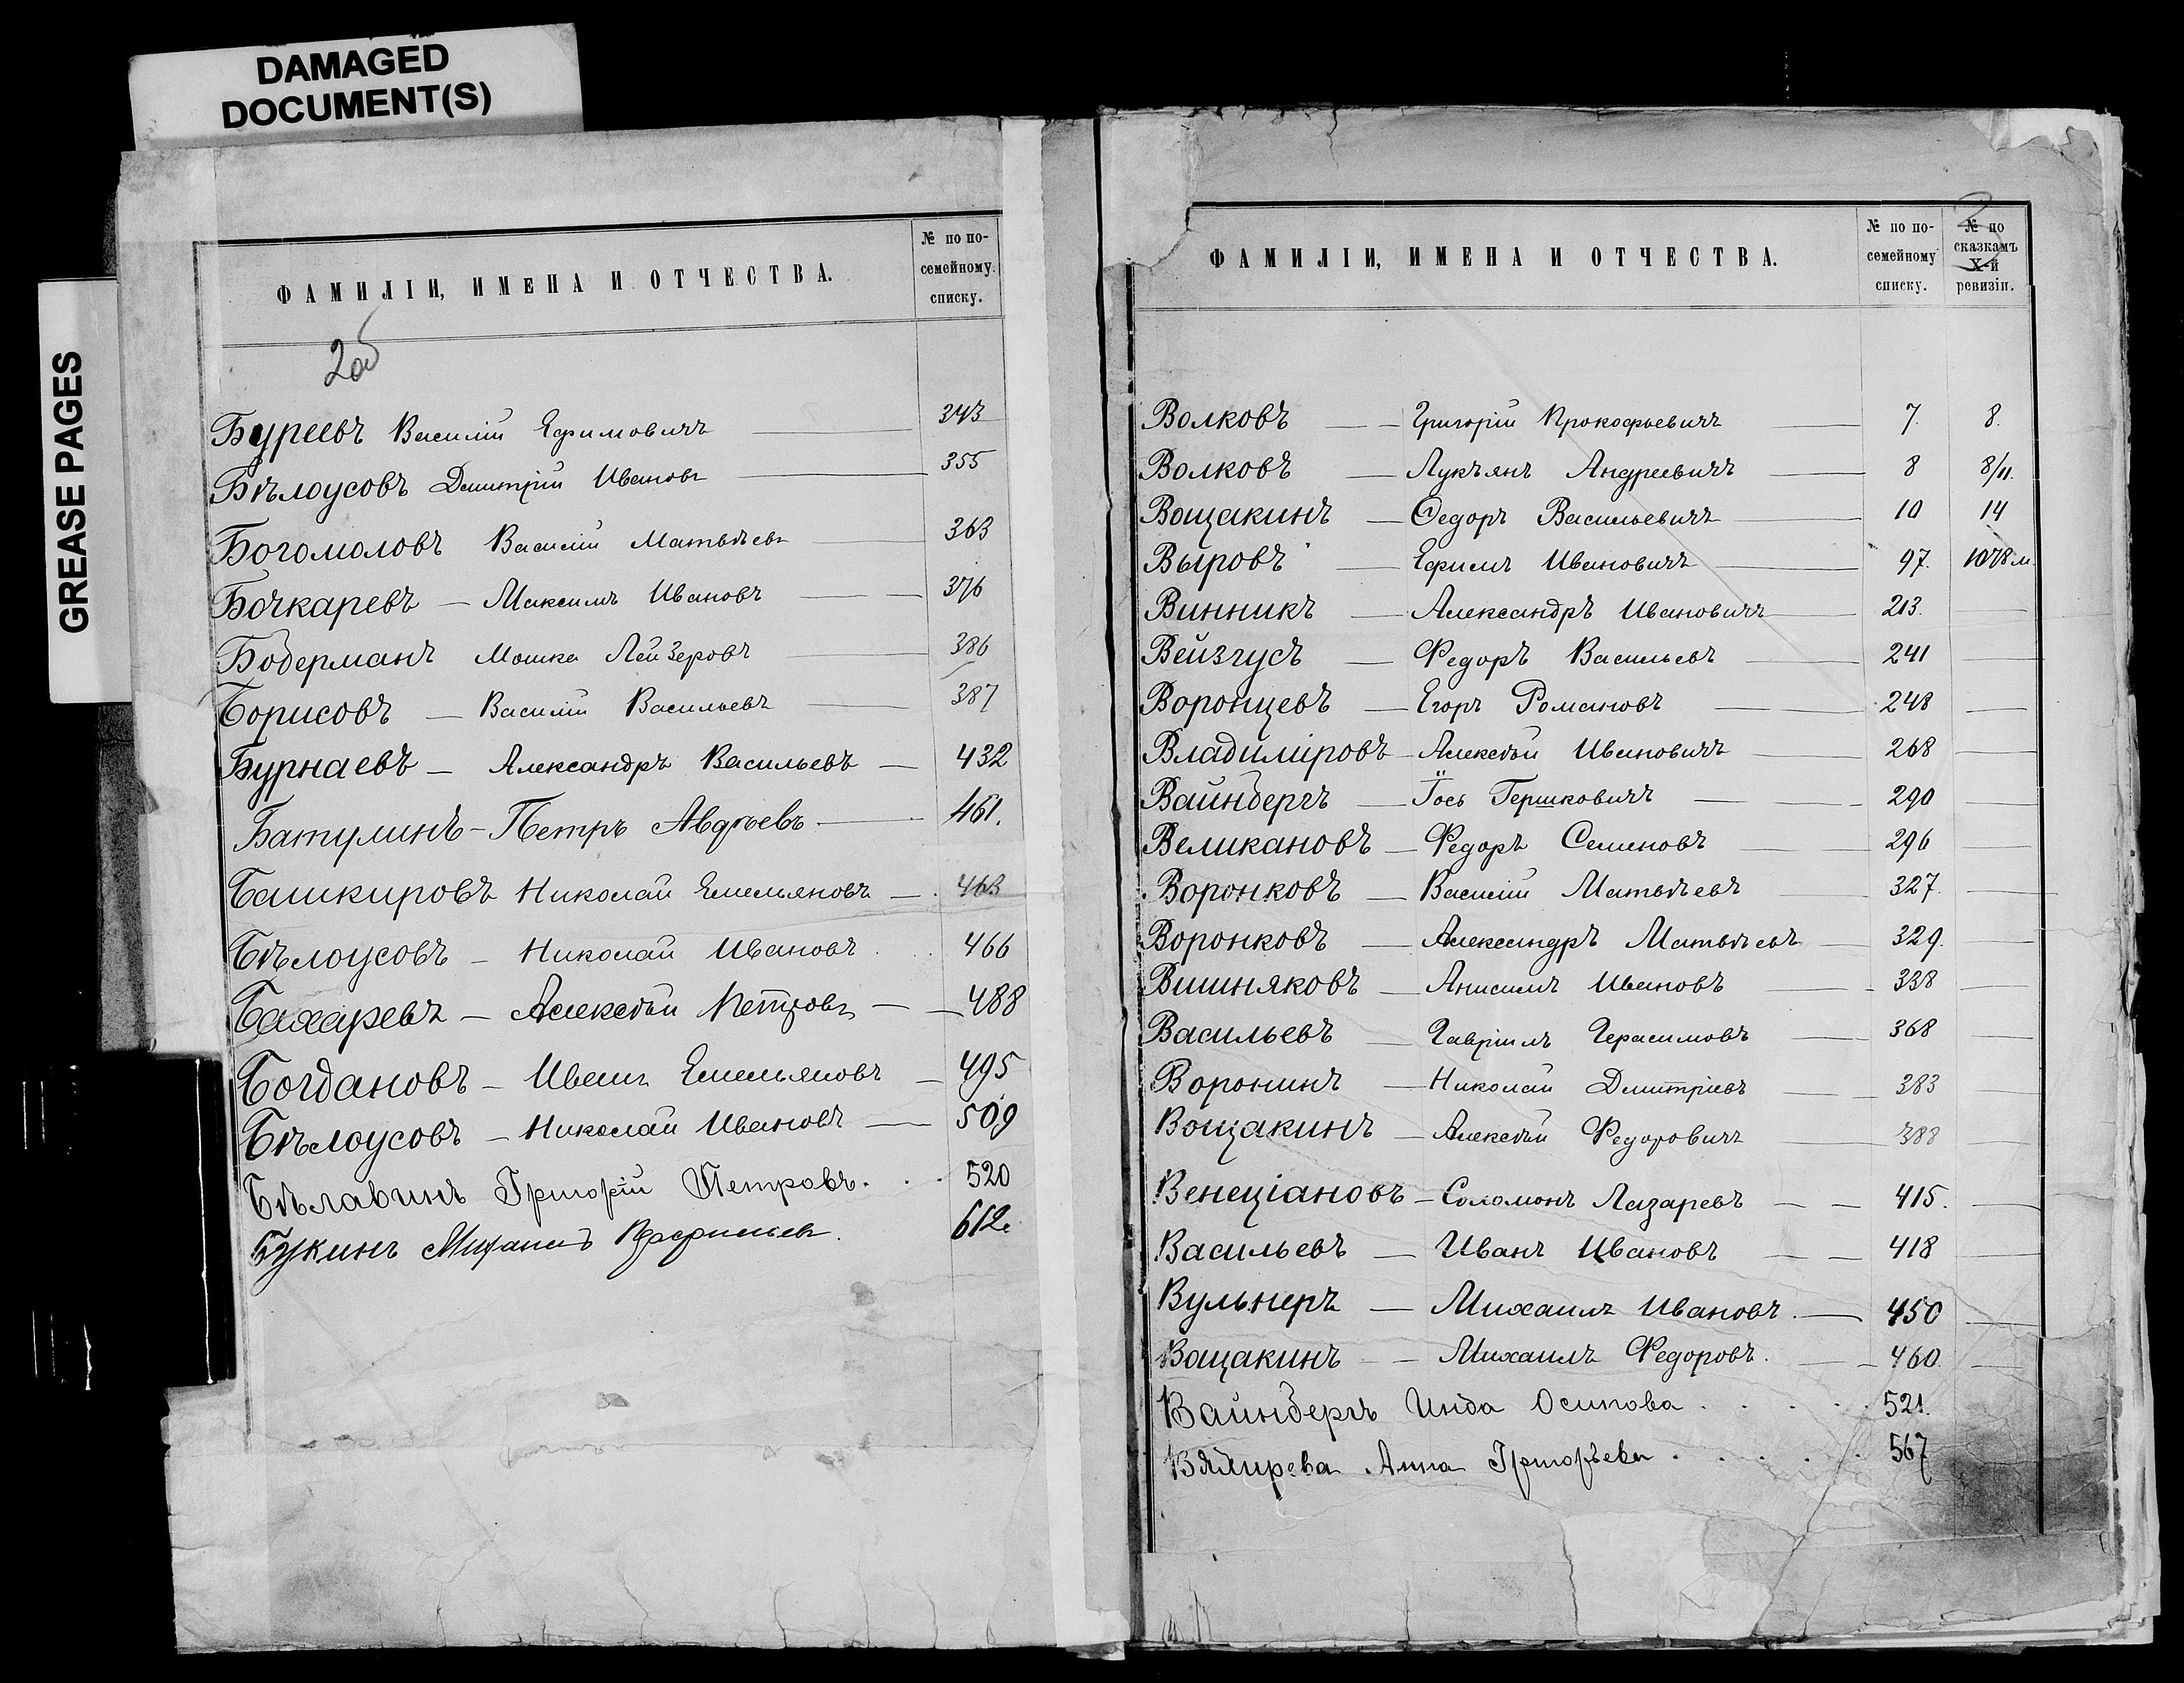 DAMAGED
DOCUMENT(S)
GREASE PAGES
ФАМИЛІИ, ИМЕНА И ОТЧЕСТВА.
№ по по-
семейному.
списку.
2об
Буреевъ Василій Ефимовичъ 343
Бѣлоусовъ Дмитрій Ивановъ 355
Богомоловъ Василій Матвѣевъ 363
Бочкаревъ — Максимъ Ивановъ — 376
Бодерманъ Мошка Лейзеровъ 386
Борисовъ — Василій Васильевъ 387
Бурнаевъ — Александръ Васильевъ — 432
Батулинъ - Петръ Авдѣевъ — 461.
Башкировъ Николай Емельяновъ — 463
Бѣлоусовъ — Николай Ивановъ 466
Бахаревъ — Алексѣй Петровъ — 488
Богдановъ — Иванъ Емельяновъ — 495
Бѣлоусовъ — Николай Ивановъ — 509
Бѣлавинъ Григорій Петровъ. 520
Букинъ Михаилъ 612
ФАМИЛІИ, ИМЕНА И ОТЧЕСТВА.
№ по по-
семейному
списку.
2
№ по
сказкамъ
X-й
ревизіи.
Волковъ — Григорій Прокофьевичъ — 7. 8.
Волковъ — Лукъянъ Андреевичъ — 8 8/11.
Вощакинъ — Ѳедоръ Васильевичъ — 10 14
Выровъ — Ефимъ Ивановичъ — 97. 1078 м.
Винникъ — Александръ Ивановичъ — 213. —
Вейзгусъ — Федоръ Васильевъ — 241 —
Воронцевъ — Егоръ Романовъ — 248 —
Владиміровъ — Алексѣй Ивановичъ — 268 —
Вайнбергъ — Іось Гершковичъ — 290 —
Великановъ — Федоръ Семеновъ — 296 —
Воронковъ — Василій Матвѣевъ — 327. —
Воронковъ — Александръ Матвѣевъ — 329. —
Вишняковъ — Анисимъ Ивановъ — 338 —
Васильевъ — Гавріилъ Герасимовъ — 368 —
Воронинъ — Николай Дмитріевъ — 383 —
Вощакинъ — Алексѣй Федоровичъ — 388 —
Венеціановъ — Соломонъ Лазаревъ — 415. —
Васильевъ — Иванъ Ивановъ — 418 —
Вульнеръ — Михаилъ Ивановъ. — 450 —
Вощакинъ — Михаилъ Федоровъ. — 460. —
Вайнбергъ Инда Осипова . . . . . 521.
Анна Григорьева . . . . . 567